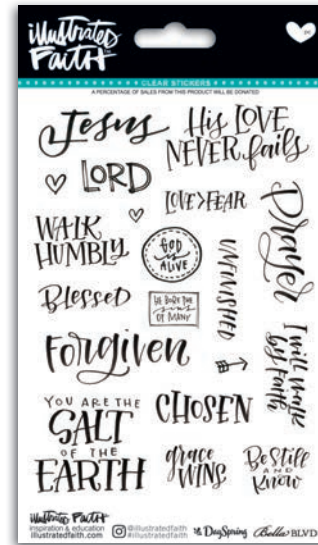 illustrated
FAITH
CLEAR STICKERS
A PERCENTAGE OF SALES FROM THIS PRODUCT WILL BE DONATED
Jesus
His LOVE
NEVER fails
LORD
LOVE>FEAR
Prayer
WALK
HUMBLY
GOD
is
ALIVE
UNFINISHED
Blessed
HE BORE THE
sins
OF MANY
I will walk
by Faith
Forgiven
YOU ARE THE
SALT
OF THE
EARTH
CHOSEN
grace
WINS
Be Still
AND
Know
illustrated FAITH
inspiration & education
illustratedfaith.com
@illustratedfaith
#illustratedfaith
DaySpring
Bella BLVD